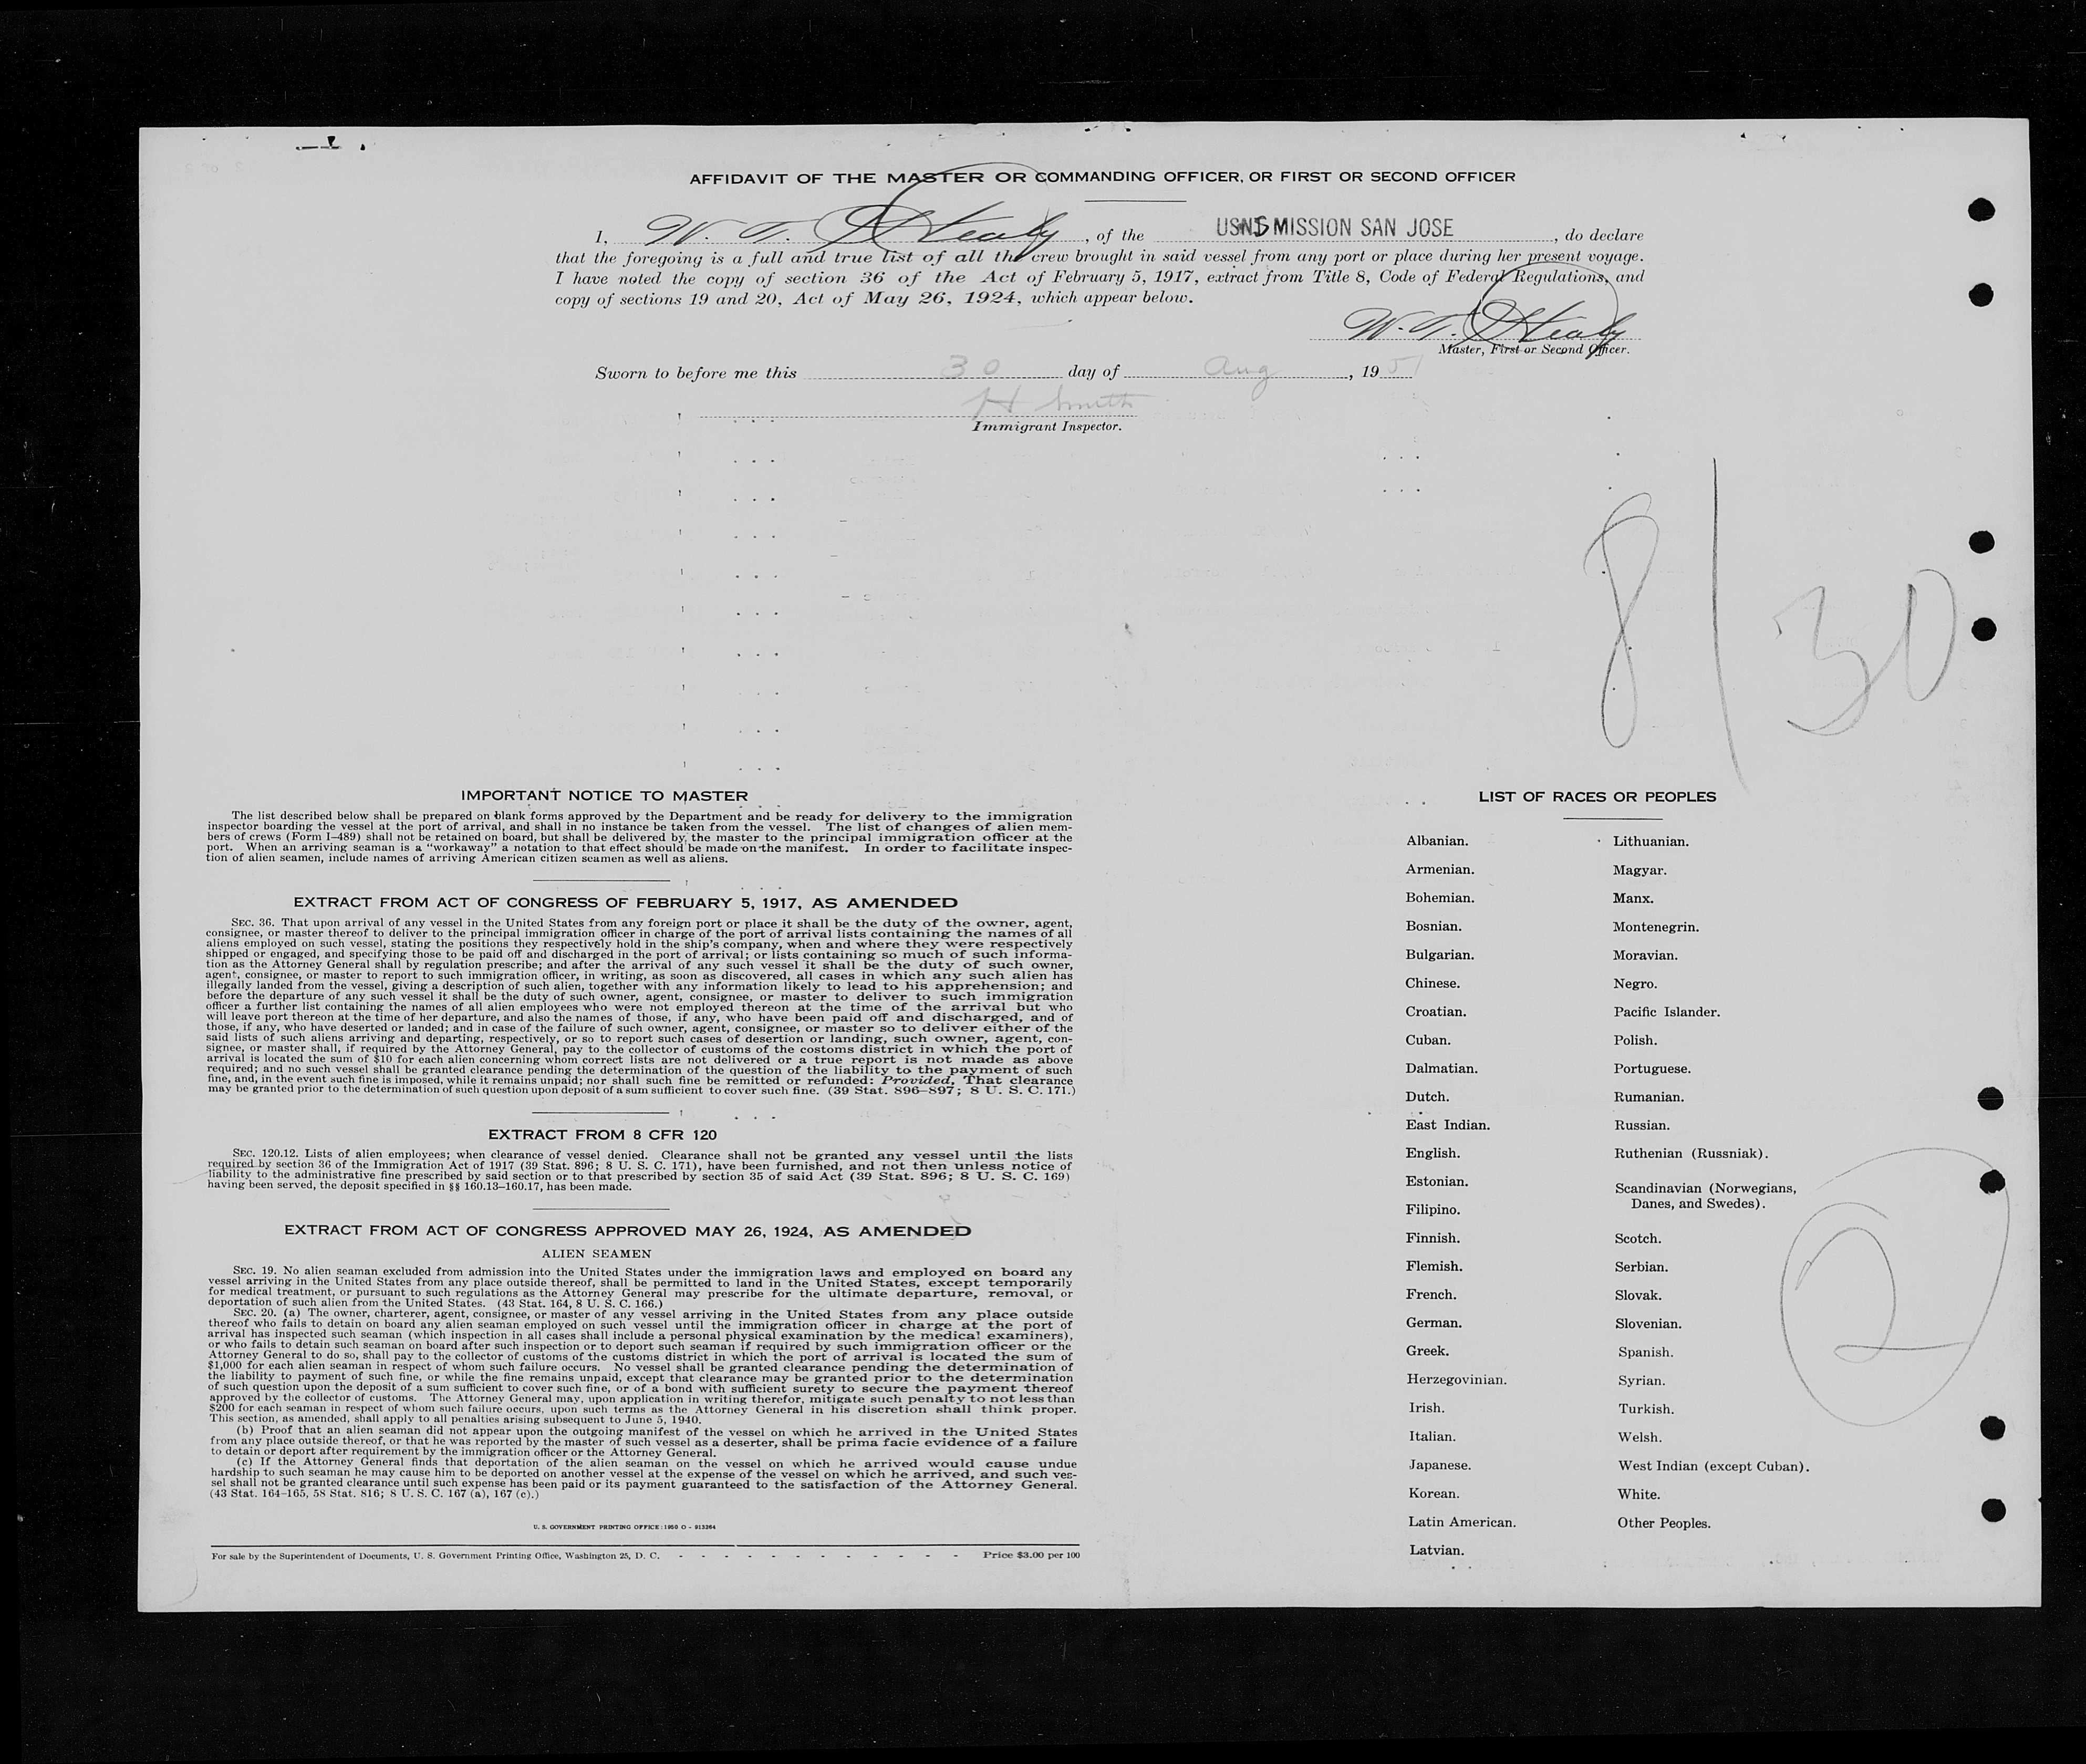 AFFIDAVIT OF THE MASTER OR COMMANDING OFFICER, OR FIRST OR SECOND OFFICER
I, W. T. Healy, of the USNS MISSION SAN JOSE, do declare
that the foregoing is a full and true list of all the crew brought in said vessel from any port or place during her present voyage.
I have noted the copy of section 36 of the Act of February 5, 1917, extract from Title 8, Code of Federal Regulations, and
copy of sections 19 and 20, Act of May 26, 1924, which appear below.
W. T. Healy
Master, First or Second Officer.
Sworn to before me this 30 day of Aug, 1951
H Smith
Immigrant Inspector.
8/30
IMPORTANT NOTICE TO MASTER
The list described below shall be prepared on blank forms approved by the Department and be ready for delivery to the immigration
inspector boarding the vessel at the port of arrival, and shall in no instance be taken from the vessel. The list of changes of alien mem-
bers of crews (Form I-489) shall not be retained on board, but shall be delivered by the master to the principal immigration officer at the
port. When an arriving seaman is a "workaway" a notation to that effect should be made on the manifest. In order to facilitate inspec-
tion of alien seamen, include names of arriving American citizen seamen as well as aliens.
EXTRACT FROM ACT OF CONGRESS OF FEBRUARY 5, 1917, AS AMENDED
SEC. 36. That upon arrival of any vessel in the United States from any foreign port or place it shall be the duty of the owner, agent,
consignee, or master thereof to deliver to the principal immigration officer in charge of the port of arrival lists containing the names of all
aliens employed on such vessel, stating the positions they respectively hold in the ship's company, when and where they were respectively
shipped or engaged, and specifying those to be paid off and discharged in the port of arrival; or lists containing so much of such informa-
tion as the Attorney General shall by regulation prescribe; and after the arrival of any such vessel it shall be the duty of such owner,
agent, consignee, or master to report to such immigration officer, in writing, as soon as discovered, all cases in which any such alien has
illegally landed from the vessel, giving a description of such alien, together with any information likely to lead to his apprehension; and
before the departure of any such vessel it shall be the duty of such owner, agent, consignee, or master to deliver to such immigration
officer a further list containing the names of all alien employees who were not employed thereon at the time of the arrival but who
will leave port thereon at the time of her departure, and also the names of those, if any, who have been paid off and discharged, and of
those, if any, who have deserted or landed; and in case of the failure of such owner, agent, consignee, or master so to deliver either of the
said lists of such aliens arriving and departing, respectively, or so to report such cases of desertion or landing, such owner, agent, con-
signee, or master shall, if required by the Attorney General, pay to the collector of customs of the costoms district in which the port of
arrival is located the sum of $10 for each alien concerning whom correct lists are not delivered or a true report is not made as above
required; and no such vessel shall be granted clearance pending the determination of the question of the liability to the payment of such
fine, and, in the event such fine is imposed, while it remains unpaid; nor shall such fine be remitted or refunded: Provided, That clearance
may be granted prior to the determination of such question upon deposit of a sum sufficient to cover such fine. (39 Stat. 896-897; 8 U. S. C. 171.)
EXTRACT FROM 8 CFR 120
SEC. 120.12. Lists of alien employees; when clearance of vessel denied. Clearance shall not be granted any vessel until the lists
required by section 36 of the Immigration Act of 1917 (39 Stat. 896; 8 U. S. C. 171), have been furnished, and not then unless notice of
liability to the administrative fine prescribed by said section or to that prescribed by section 35 of said Act (39 Stat. 896; 8 U. S. C. 169)
having been served, the deposit specified in §§ 160.13-160.17, has been made.
EXTRACT FROM ACT OF CONGRESS APPROVED MAY 26, 1924, AS AMENDED
ALIEN SEAMEN
SEC. 19. No alien seaman excluded from admission into the United States under the immigration laws and employed on board any
vessel arriving in the United States from any place outside thereof, shall be permitted to land in the United States, except temporarily
for medical treatment, or pursuant to such regulations as the Attorney General may prescribe for the ultimate departure, removal, or
deportation of such alien from the United States. (43 Stat. 164, 8 U. S. C. 166.)
SEC. 20. (a) The owner, charterer, agent, consignee, or master of any vessel arriving in the United States from any place outside
thereof who fails to detain on board any alien seaman employed on such vessel until the immigration officer in charge at the port of
arrival has inspected such seaman (which inspection in all cases shall include a personal physical examination by the medical examiners),
or who fails to detain such seaman on board after such inspection or to deport such seaman if required by such immigration officer or the
Attorney General to do so, shall pay to the collector of customs of the customs district in which the port of arrival is located the sum of
$1,000 for each alien seaman in respect of whom such failure occurs. No vessel shall be granted clearance pending the determination of
the liability to payment of such fine, or while the fine remains unpaid, except that clearance may be granted prior to the determination
of such question upon the deposit of a sum sufficient to cover such fine, or of a bond with sufficient surety to secure the payment thereof
approved by the collector of customs. The Attorney General may, upon application in writing therefor, mitigate such penalty to not less than
$200 for each seaman in respect of whom such failure occurs, upon such terms as the Attorney General in his discretion shall think proper.
This section, as amended, shall apply to all penalties arising subsequent to June 5, 1940.
(b) Proof that an alien seaman did not appear upon the outgoing manifest of the vessel on which he arrived in the United States
from any place outside thereof, or that he was reported by the master of such vessel as a deserter, shall be prima facie evidence of a failure
to detain or deport after requirement by the immigration officer or the Attorney General.
(c) If the Attorney General finds that deportation of the alien seaman on the vessel on which he arrived would cause undue
hardship to such seaman he may cause him to be deported on another vessel at the expense of the vessel on which he arrived, and such ves-
sel shall not be granted clearance until such expense has been paid or its payment guaranteed to the satisfaction of the Attorney General.
(43 Stat. 164-165, 58 Stat. 816; 8 U. S. C. 167 (a), 167 (c).)
U. S. GOVERNMENT PRINTING OFFICE: 1950 O - 913364
For sale by the Superintendent of Documents, U. S. Government Printing Office, Washington 25, D. C. - - - - - - - - - - - Price $3.00 per 100
LIST OF RACES OR PEOPLES
Albanian.
Armenian.
Bohemian.
Bosnian.
Bulgarian.
Chinese.
Croatian.
Cuban.
Dalmatian.
Dutch.
East Indian.
English.
Estonian.
Filipino.
Finnish.
Flemish.
French.
German.
Greek.
Herzegovinian.
Irish.
Italian.
Japanese.
Korean.
Latin American.
Latvian.
Lithuanian.
Magyar.
Manx.
Montenegrin.
Moravian.
Negro.
Pacific Islander.
Polish.
Portuguese.
Rumanian.
Russian.
Ruthenian (Russniak).
Scandinavian (Norwegians,
Danes, and Swedes).
Scotch.
Serbian.
Slovak.
Slovenian.
Spanish.
Syrian.
Turkish.
Welsh.
West Indian (except Cuban).
White.
Other Peoples.
2